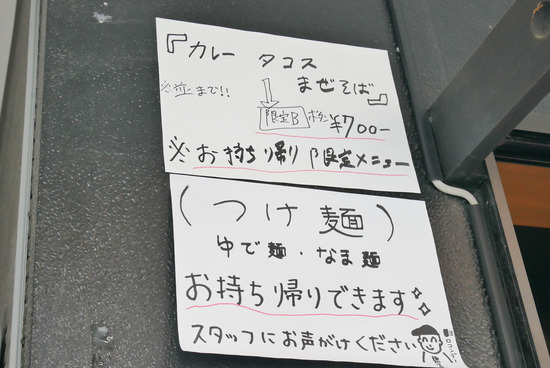 『カレー タコス
まぜそば』
まで!!
限定B ボタン ¥700-
※お持ち帰り限定メニュー
(つけ麺)
ゆで麺・なま麺
お持ち帰りできます
スタッフにお声がけください